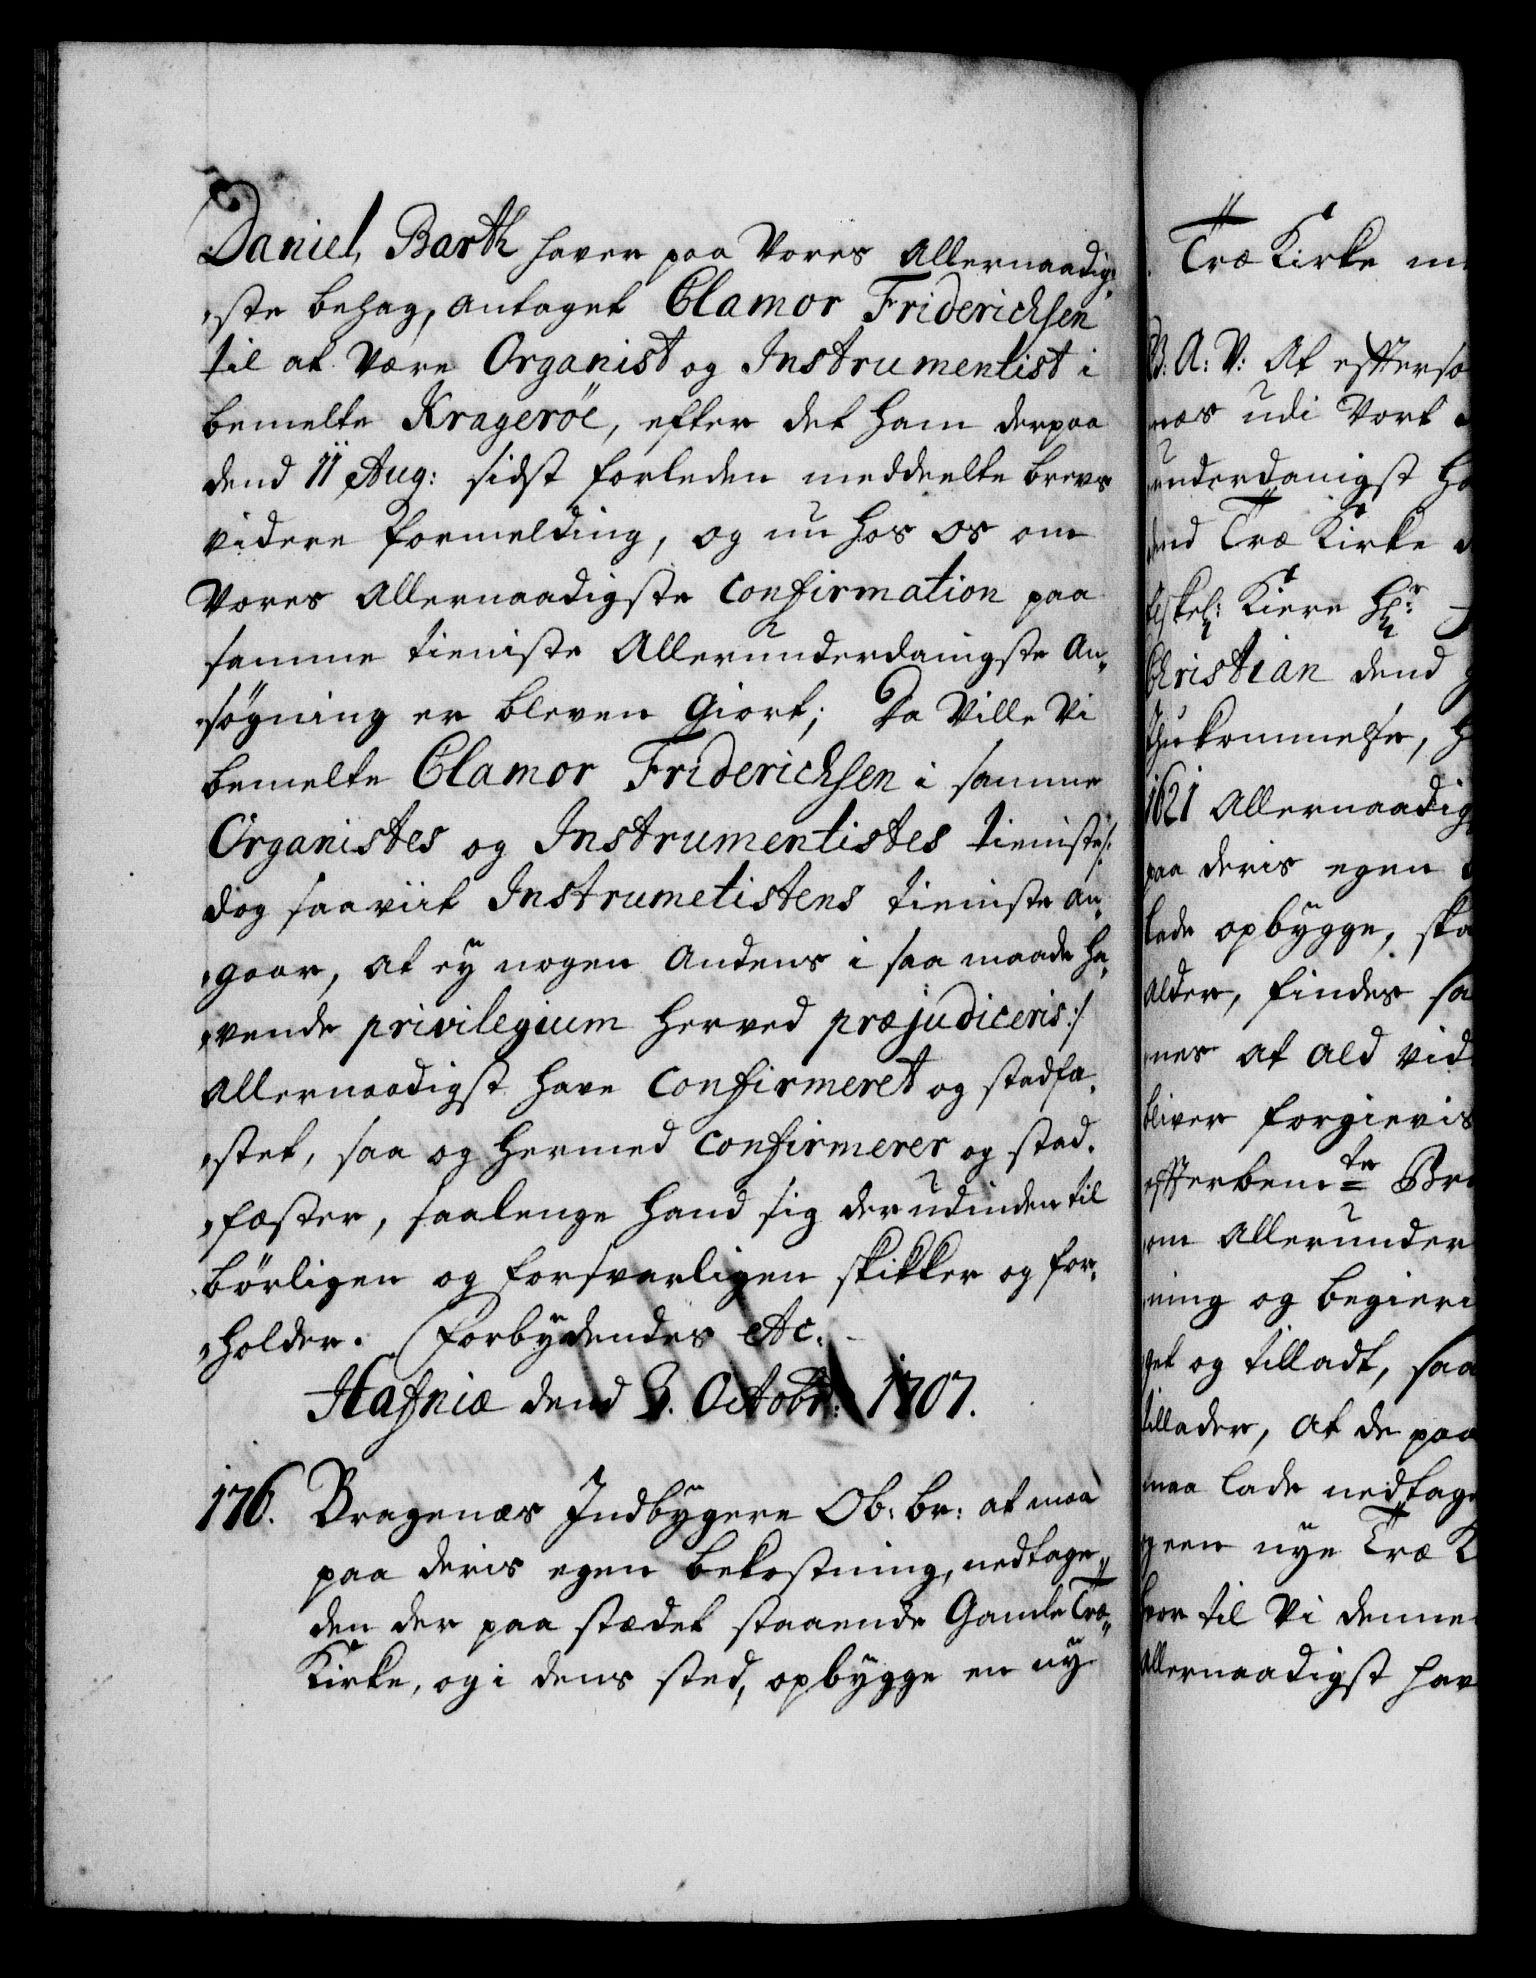 Daniel Barth haver paa Vores Allernaadig-
ste behag, antaget Clamor Friderichsen
til at være Organist og Instrumentist i
bemelte Kragerøe, efter det ham derpaa
dend 11 Aug: sidst forleden meddeelte brevs
videre formelding, og nu hos os om
Vores Allernaadigste Confirmation paa
samme tieniste Allerunderdanigste An-
søgning er bleven Giort; Da Ville Vi
bemelte Clamor Friderichsen i samme
Organistes og Instrumentistes tieniste /:
dog saaviit Instrumetistens tieniste an-
gaar, at ey nogen Andens i saa maade ha-
vende privilegium herved præjudiceris :/
Allernaadigst have Confirmeret og stadfæ-
stet, saa og hermed Confirmerer og stad-
fæster, saalenge hand sig derudinden til
børligen og forsvarligen skikker og for-
holder. Forbydendes etc.
Hafniæ dend 3. Octobr: 1707.
176. Bragenæs Indbygere Ob: br: at maa
paa deris egen bekostning, nedtage
den der paa stædet staaende Gamle Træ-
Kirke, og i dens sted, opbygge en ny
Træ Kirke
B. A: V: At effterso
næs udi Vort
underdanigst ha
dend Træ Kirke
Kiere Hr:
Christian dend
ihukommelse, h
1621 Allernaadig
paa deris egen
lade opbygge, ska
Alder, findes sa
nes at ald vid
bliver forgievis
effterbemte Br
om Allerunder
ning og begieri
get og tilladt, saa
tillader, At de paa
maa lade nedtage
geen nye Træ K
hvor til Vi denne
Allernaadigst hav